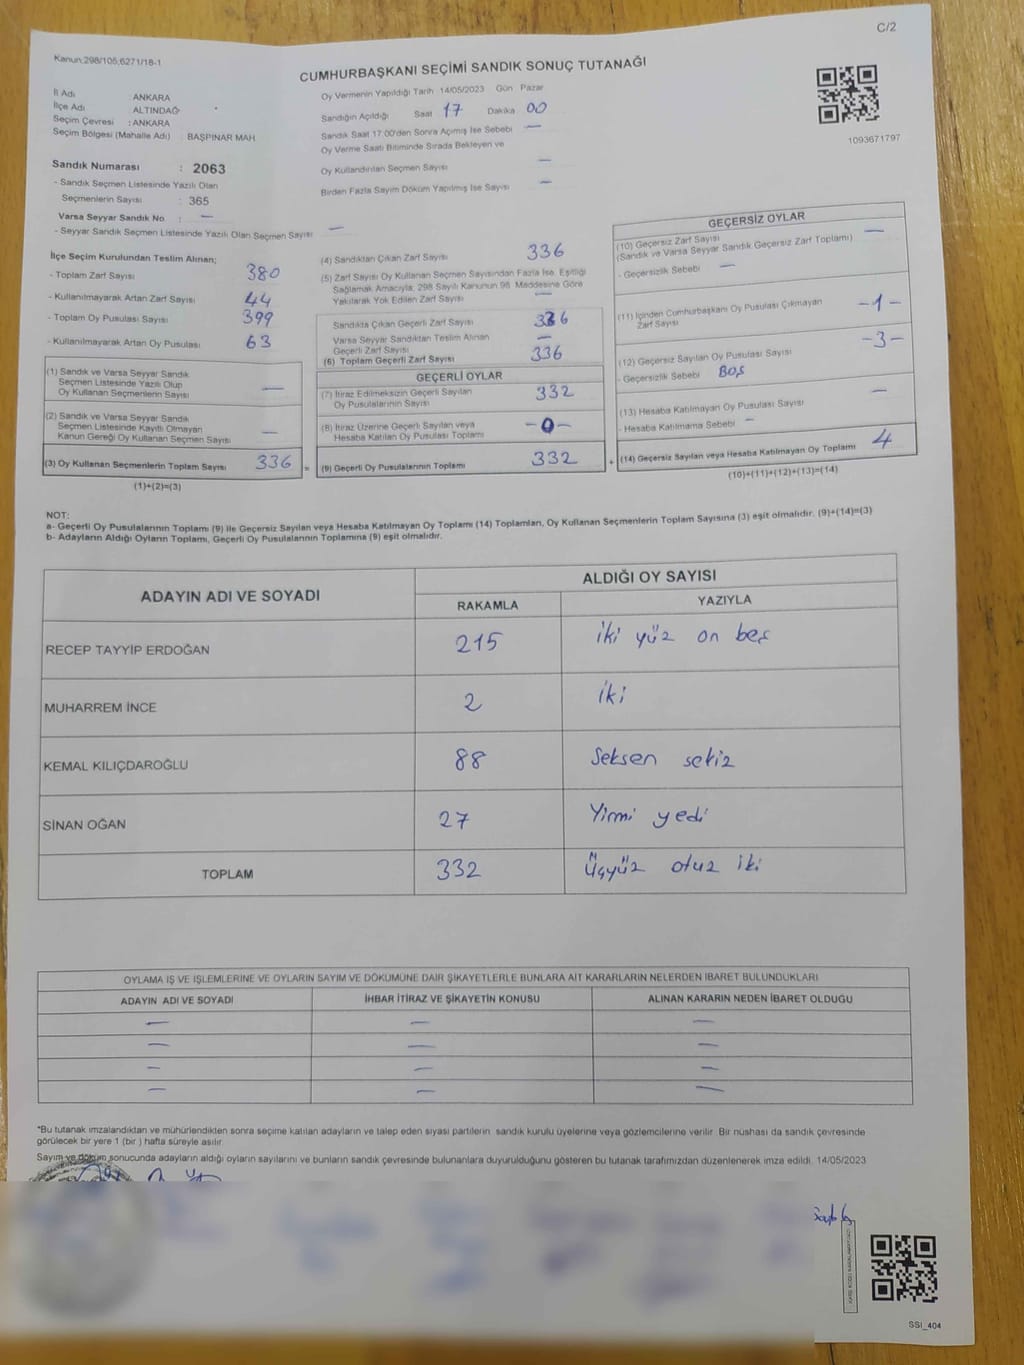 C/2
Kanun:298/105,6271/18-1
CUMHURBAŞKANI SEÇİMİ SANDIK SONUÇ TUTANAĞI
İl Adı : ANKARA
İlçe Adı : ALTINDAĞ
Seçim Çevresi : ANKARA
Seçim Bölgesi (Mahalle Adı) BAŞPINAR MAH
Oy Vermenin Yapıldığı Tarih 14/05/2023 Gün Pazar
Sandığın Açıldığı Saat 17 Dakika 00
Sandık Saat 17.00'den Sonra Açımış İse Sebebi —
Oy Verme Saati Bitiminde Sırada Bekleyen ve
Oy Kullandırılan Seçmen Sayısı —
Birden Fazla Sayım Döküm Yapılmış İse Sayısı —
1093671797
Sandık Numarası : 2063
- Sandık Seçmen Listesinde Yazılı Olan
Seçmenlerin Sayısı : 365
Varsa Seyyar Sandık No : —
- Seyyar Sandık Seçmen Listesinde Yazılı Olan Seçmen Sayısı —
İlçe Seçim Kurulundan Teslim Alınan;
- Toplam Zarf Sayısı 380
- Kullanılmayarak Artan Zarf Sayısı 44
- Toplam Oy Pusulası Sayısı 399
- Kullanılmayarak Artan Oy Pusulası 63
(1) Sandık ve Varsa Seyyar Sandık
Seçmen Listesinde Yazılı Olup
Oy Kullanan Seçmenlerin Sayısı —
(2) Sandık ve Varsa Seyyar Sandık
Seçmen Listesinde Kayıtlı Olmayan
Kanun Gereği Oy Kullanan Seçmen Sayısı —
(3) Oy Kullanan Seçmenlerin Toplam Sayısı 336 =
(1)+(2)=(3)
(4) Sandıktan Çıkan Zarf Sayısı 336
(5) Zarf Sayısı Oy Kullanan Seçmen Sayısından Fazla İse, Eşitliği
Sağlamak Amacıyla, 298 Sayılı Kanunun 98. Maddesine Göre
Yakılarak Yok Edilen Zarf Sayısı —
Sandıkta Çıkan Geçerli Zarf Sayısı 336
Varsa Seyyar Sandıktan Teslim Alınan
Geçerli Zarf Sayısı —
(6) Toplam Geçerli Zarf Sayısı 336
GEÇERLİ OYLAR
(7) İtiraz Edilmeksizin Geçerli Sayılan
Oy Pusulalarının Sayısı 332
(8) İtiraz Üzerine Geçerli Sayılan veya
Hesaba Katılan Oy Pusulası Toplamı -0-
(9) Geçerli Oy Pusulalarının Toplamı 332 +
GEÇERSİZ OYLAR
(10) Geçersiz Zarf Sayısı —
(Sandık ve Varsa Seyyar Sandık Geçersiz Zarf Toplamı)
- Geçersizlik Sebebi —
(11) İçinden Cumhurbaşkanı Oy Pusulası Çıkmayan
Zarf Sayısı -1-
(12) Geçersiz Sayılan Oy Pusulası Sayısı -3-
- Geçersizlik Sebebi BOŞ
(13) Hesaba Katılmayan Oy Pusulası Sayısı —
- Hesaba Katılmama Sebebi —
(14) Geçersiz Sayılan veya Hesaba Katılmayan Oy Toplamı 4
(10)+(11)+(12)+(13)=(14)
NOT:
a- Geçerli Oy Pusulalarının Toplamı (9) ile Geçersiz Sayılan veya Hesaba Katılmayan Oy Toplamı (14) Toplamları, Oy Kullanan Seçmenlerin Toplam Sayısına (3) eşit olmalıdır. (9)+(14)=(3)
b- Adayların Aldığı Oyların Toplamı, Geçerli Oy Pusulalarının Toplamına (9) eşit olmalıdır.
ADAYIN ADI VE SOYADI ALDIĞI OY SAYISI
RAKAMLA YAZIYLA
RECEP TAYYİP ERDOĞAN 215 iki yüz on beş
MUHARREM İNCE 2 iki
KEMAL KILIÇDAROĞLU 88 Seksen sekiz
SİNAN OĞAN 27 Yirmi yedi
TOPLAM 332 Üçyüz otuz iki
OYLAMA İŞ VE İŞLEMLERİNE VE OYLARIN SAYIM VE DÖKÜMÜNE DAİR ŞİKAYETLERLE BUNLARA AİT KARARLARIN NELERDEN İBARET BULUNDUKLARI
ADAYIN ADI VE SOYADI İHBAR İTİRAZ VE ŞİKAYETİN KONUSU ALINAN KARARIN NEDEN İBARET OLDUĞU
— — —
— — —
— — —
— — —
*Bu tutanak imzalandıktan ve mühürlendikten sonra seçime katılan adayların ve talep eden siyasi partilerin sandık kurulu üyelerine veya gözlemcilerine verilir. Bir nüshası da sandık çevresinde
görülecek bir yere 1 (bir ) hafta süreyle asılır.
Sayım ve döküm sonucunda adayların aldığı oyların sayılarını ve bunların sandık çevresinde bulunanlara duyurulduğunu gösteren bu tutanak tarafımızdan düzenlenerek imza edildi. 14/05/2023
SSI_404